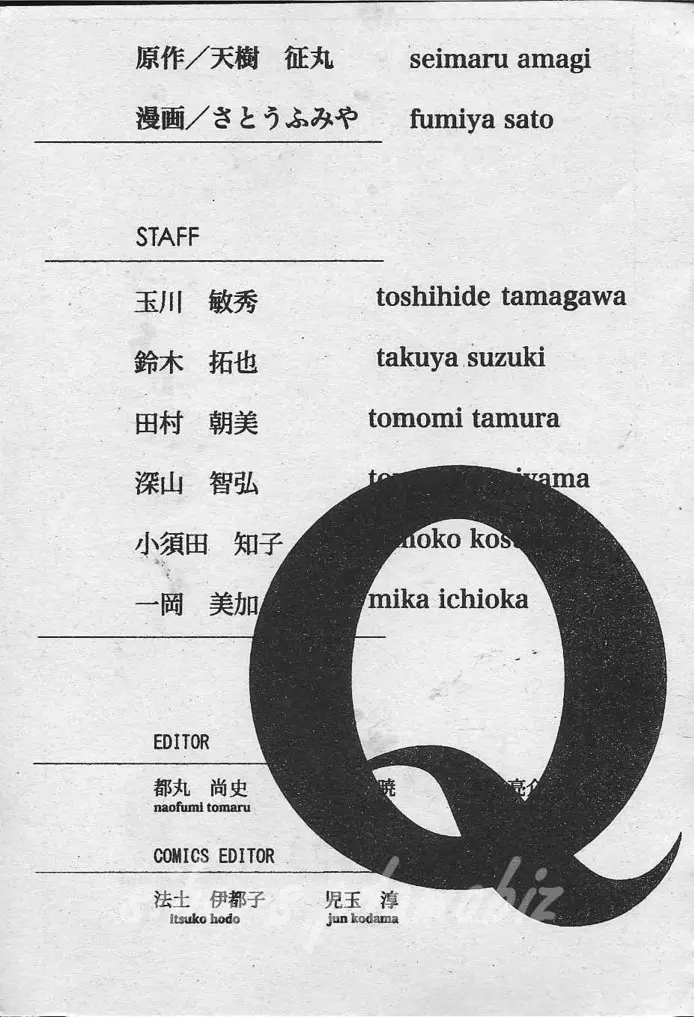 原作／天樹　征丸 seimaru amagi
漫画／さとうふみや fumiya sato
STAFF
玉川　敏秀 toshihide tamagawa
鈴木　拓也 takuya suzuki
田村　朝美 tomomi tamura
深山　智弘
小須田　知子
一岡　美加 mika ichioka
Q
EDITOR
都丸　尚史 暁 亮介
naofumi tomaru
COMICS EDITOR
法土　伊都子 児玉　淳
itsuko hodo jun kodama